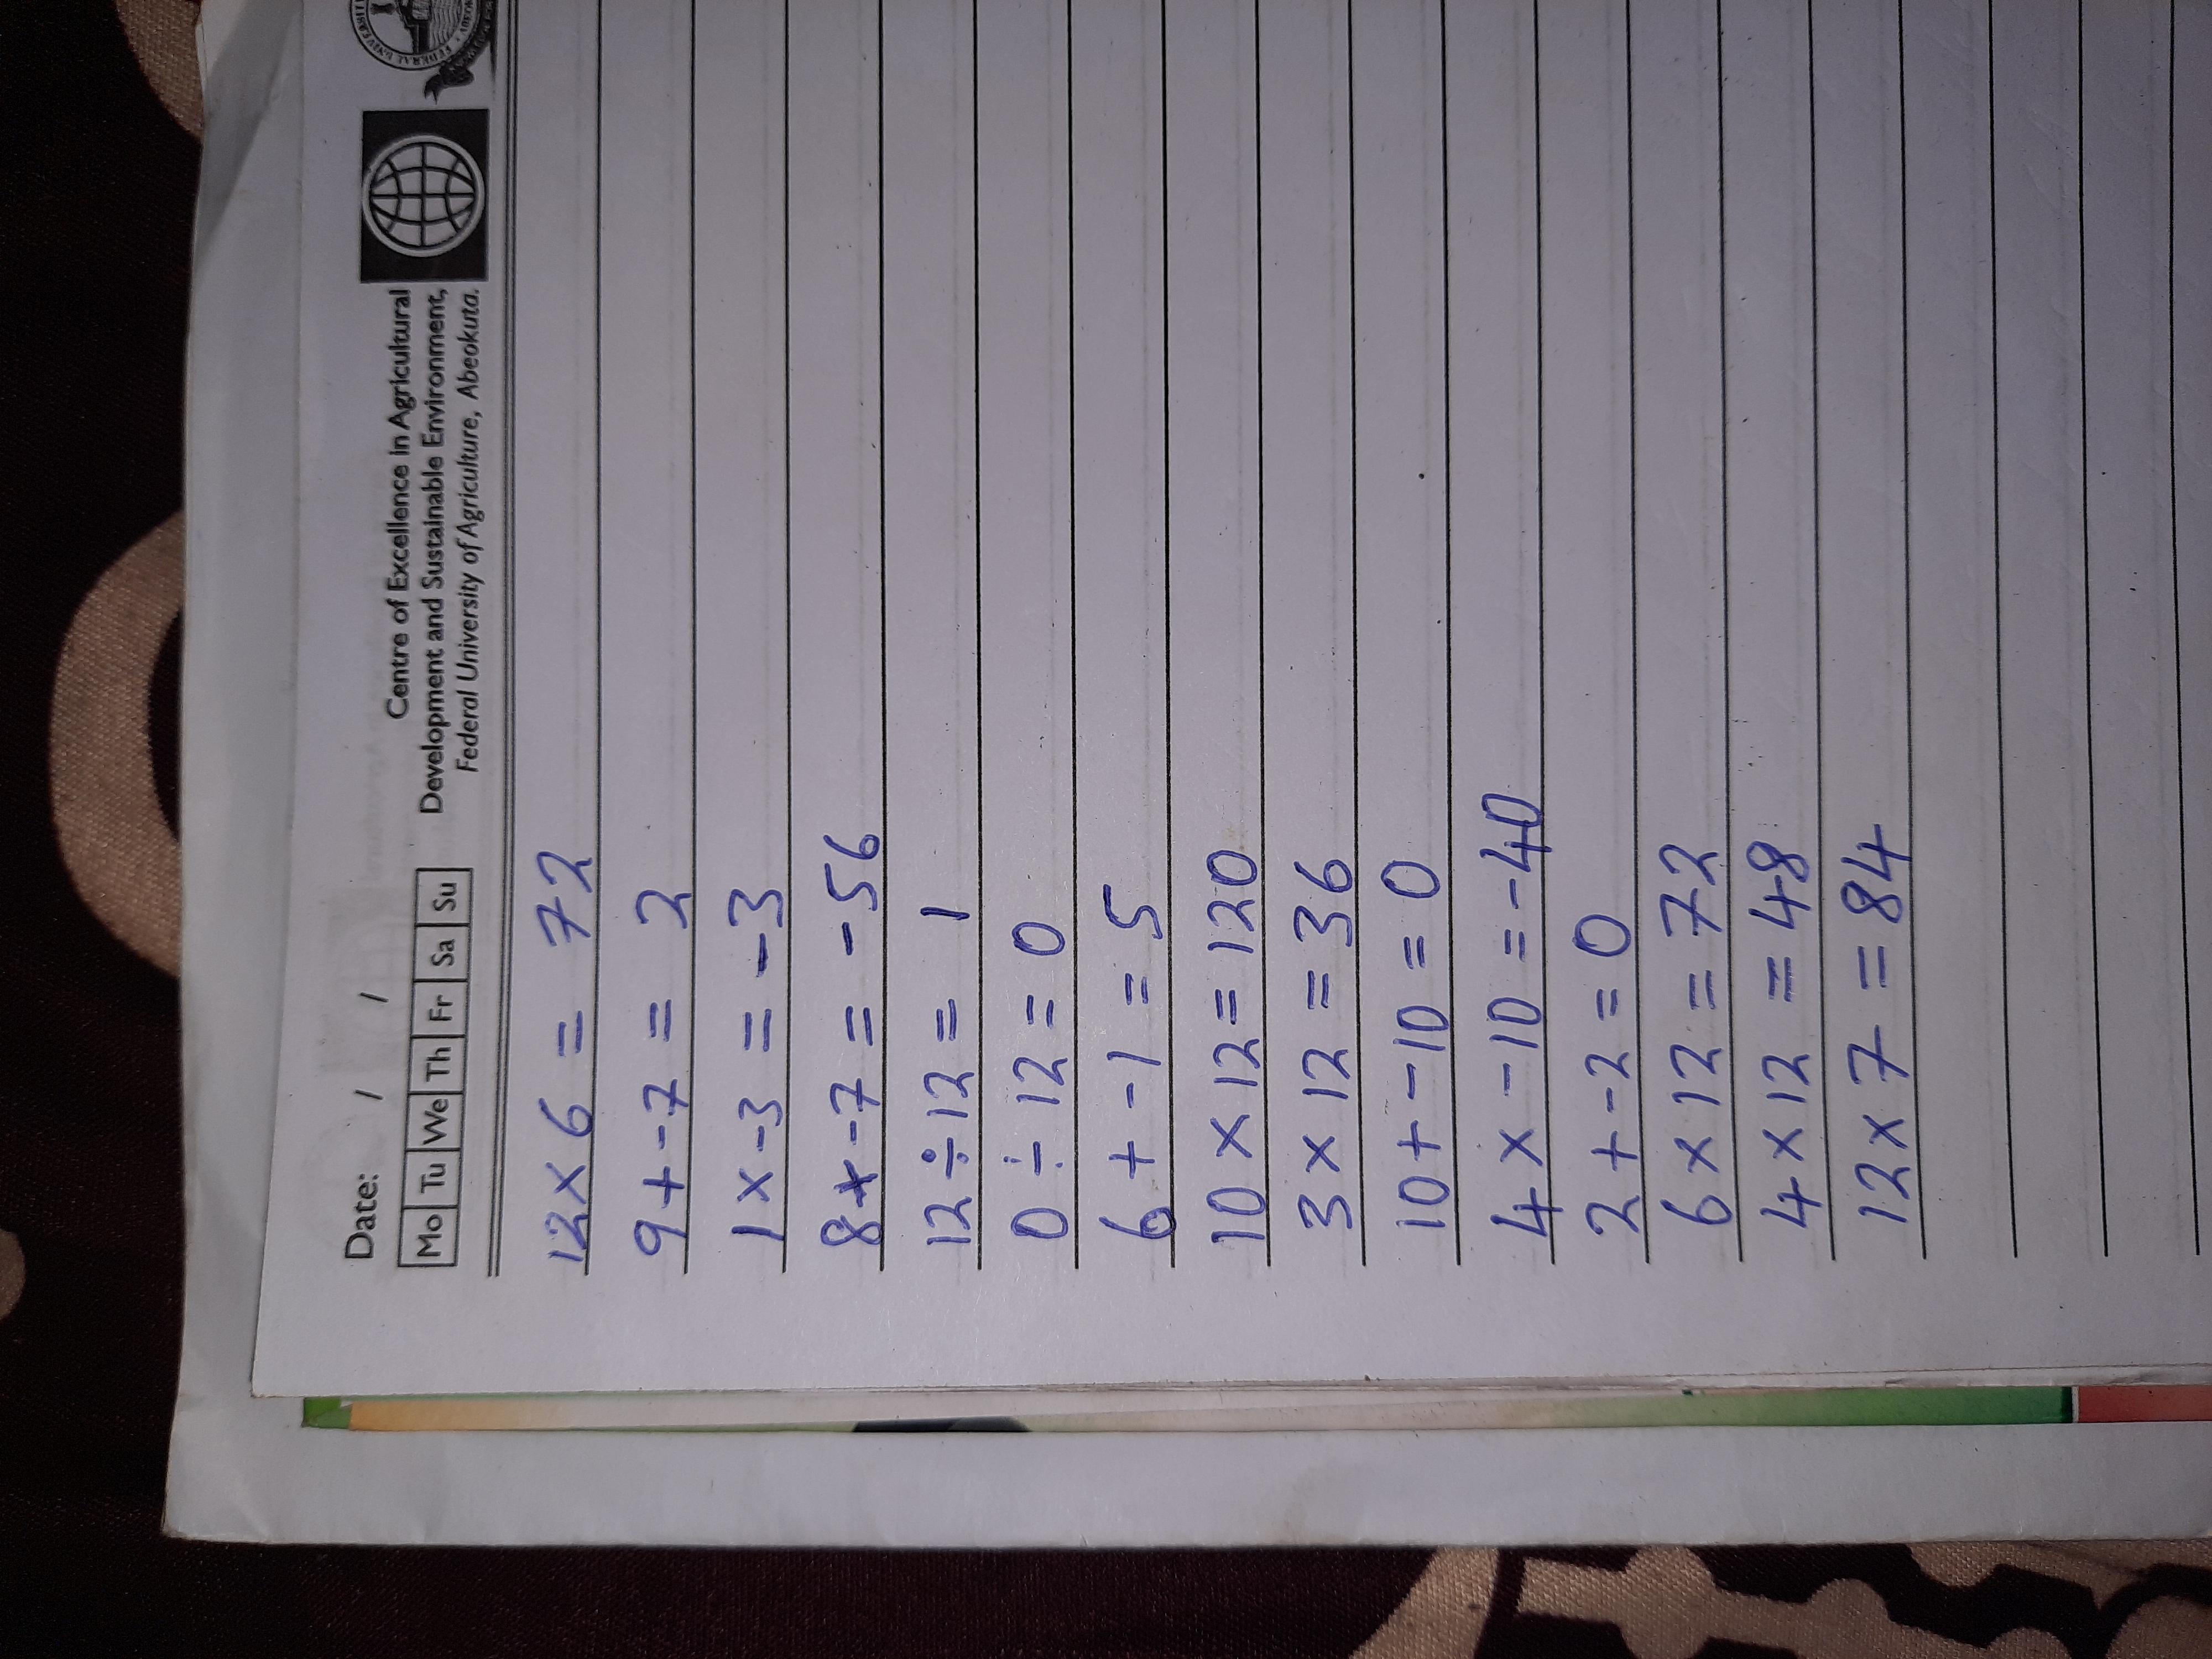 Date: / /
Mo Tu We Th Fr Sa Su
Centre of Excellence in Agricultural
Development and Sustainable Environment,
Federal University of Agriculture, Abeokuta.
FEDERAL UNIVERSITY
12 x 6 = 72
9 + -7 = 2
1 x -3 = -3
8 x -7 = -56
12 ÷ 12 = 1
0 ÷ 12 = 0
6 + -1 = 5
10 x 12 = 120
3 x 12 = 36
10 + -10 = 0
4 x -10 = -40
2 + -2 = 0
6 x 12 = 72
4 x 12 = 48
12 x 7 = 84